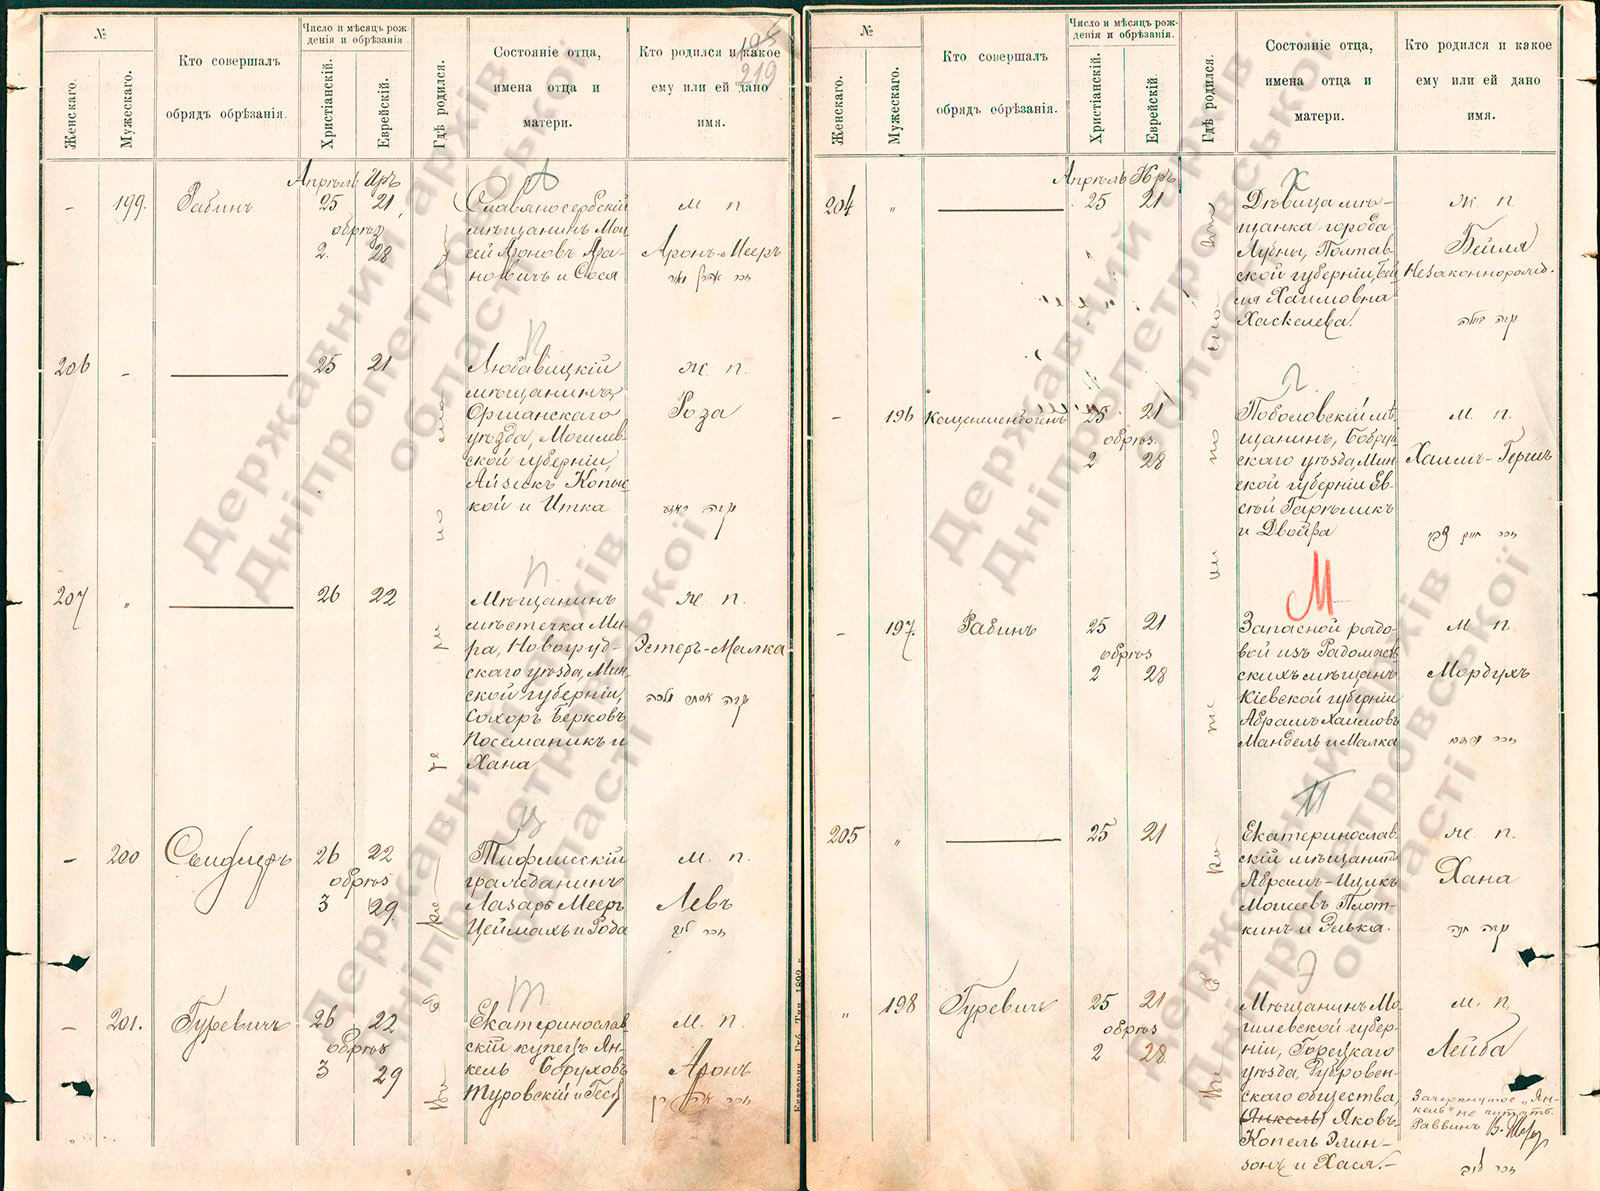 №
Женскаго.
Мужескаго.
Кто совершалъ
обрядъ обрѣзанія.
Число и мѣсяцъ рож-
денія и обрѣзанія
Христіанскій.
Еврейскій.
Гдѣ родился.
Состояніе отца,
имена отца и
матери.
Кто родился и какое
ему или ей дано
имя.
105
219
Апрѣль Иръ
А
- 199. Рабинъ 25 21
обрѣз
2. 28
Славяносербскій
мѣщанинъ Мов
сей Ароновъ Ара-
новичъ и Сося
м п.
Аронъ-Мееръ
П
206 - 25 21
Любавицкій
мѣщанинъ
Оршанскаго
уѣзда, Могилев
ской губерніи,
Айзикъ Копы
кой и Итка
ж. п.
Роза
П.
207 " 26 22
Мѣщанинъ
мѣстечка Ми-
ра, Новогруд-
скаго уѣзда, Мин
ской губерніи,
Сохоръ Берковъ
Посеманикъ и
Хана
ж. п.
Эстеръ-Малка
- 200 26 22
обрѣз
3 29
Тифлисскій
гражданинъ
Лазарь Мееръ
Цеймахъ и Рода
м. п.
Левъ
Т
- 201. Гуревичъ 26 22
обрѣз
3 29
Екатеринослав
скій купецъ Ян-
кель Обруховъ
Туровскій и Гес
м. п.
Аронъ
№
Женскаго.
Мужескаго.
Кто совершалъ
обрядъ обрѣзанія.
Число и мѣсяцъ рож-
денія и обрѣзанія.
Христіанскій.
Еврейскій
Гдѣ родился.
Состояніе отца,
имена отца и
матери.
Кто родился и какое
ему или ей дано
имя.
Апрѣль Иръ
Х
204 " 25 21
Дѣвица мѣ-
щанка города
Лубны, Полтав
ской губерніи, Бей
ля Хаимовна
Хаскелева.
ж п.
Бейля
Незаконнорожд.
Л.
- 196 25 21
обрѣз.
2 28
Поболовскій мѣ
щанинъ, Бобруй
скаго уѣзда, Мин
ской губерніи Ев
сѣй Гарѣликъ
и Двойра
м п.
Хаимъ-Гершъ
М
- 197. Рабинъ 25 21
обрѣз
2 28
Запасной рядо-
вой изъ Радомысл
скихъ мѣщанъ
Кіевской губерніи
Абрамъ Хаимовъ
Мандель и Малка
м п.
Мордухъ
П
205 " 25 21
Екатеринослав
скій мѣщанинъ
Абрамъ-Ицикъ
Моисеевъ Плот-
кинъ и Элька.
ж п.
Хана
Э
" 198 Гуревичъ 25 21
обрѣз
2 28
Мѣщанинъ Мо
гилевской губер-
ніи, Горецкаго
уѣзда, Дубровен-
скаго общества,
(Янкель) Яковъ-
Копель Элин-
зонъ и Хася.-
м. п.
Лейба
Зачеркнутое „Ян-
кель" не читать.
Раввинъ
Державний архів
Дніпропетровської
області
Державний архів
Дніпропетровської
області
Державний архів
Дніпропетровської
області
Державний архів
Дніпропетровської
області